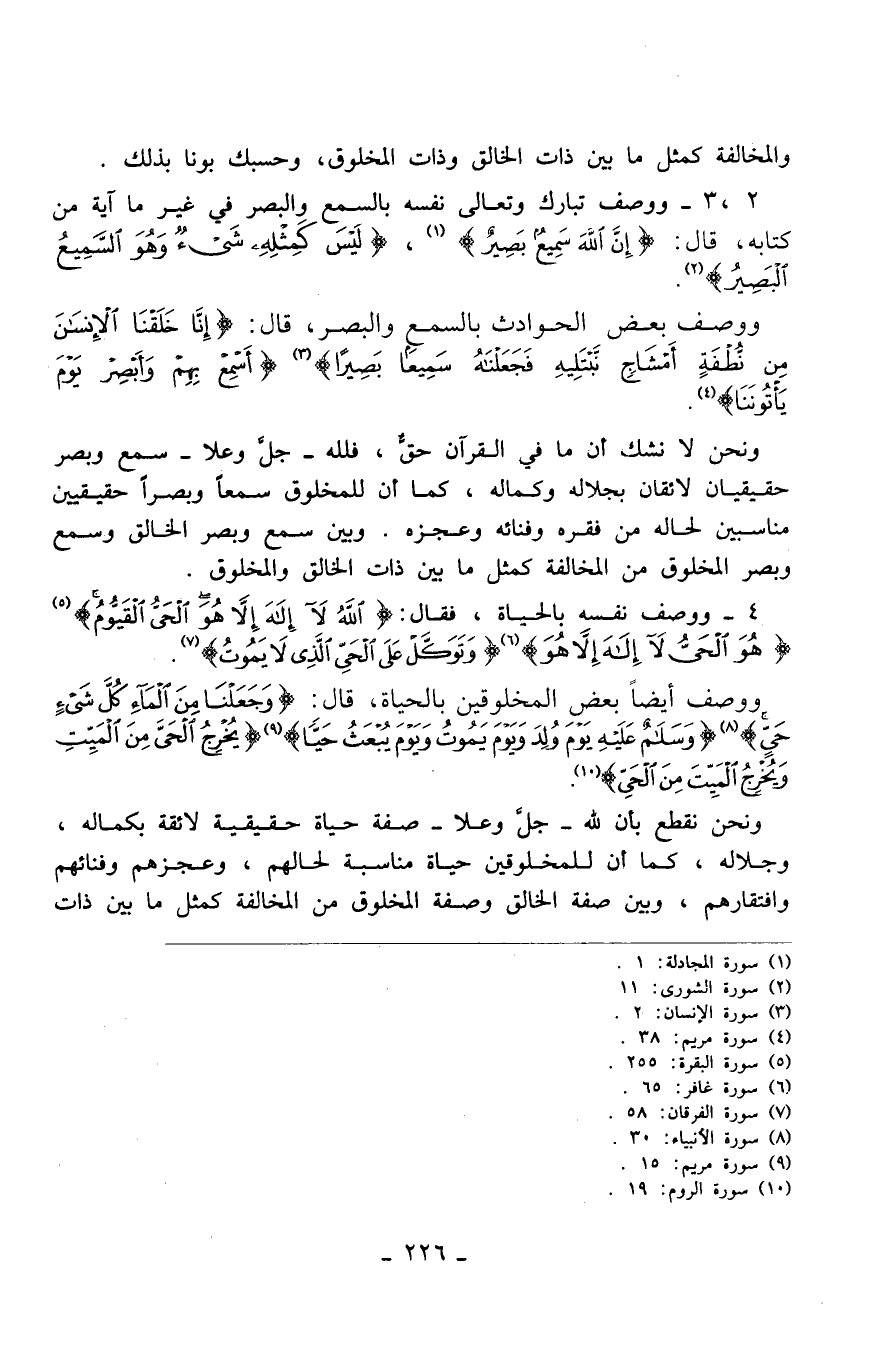 والمخالفة كمثل ما بين ذات الخالق وذات المخلوق، وحسبك بونا بذلك .
٢ ،٣ ـ ووصف تبارك وتعالى نفسه بالسمع والبصر في غير ما آية من
كتابه، قال: ﴿ إِنَّ ٱللَّهَ سَمِيعٌۢ بَصِيرٌ ﴾ (١) ، ﴿ لَيْسَ كَمِثْلِهِۦ شَىْءٌ وَهُوَ ٱلسَّمِيعُ
ٱلْبَصِيرُ ﴾(٢).
ووصف بعض الحوادث بالسمع والبصر، قال: ﴿ إِنَّا خَلَقْنَا ٱلْإِنسَٰنَ
مِن نُّطْفَةٍ أَمْشَاجٍ نَّبْتَلِيهِ فَجَعَلْنَٰهُ سَمِيعًۢا بَصِيرًا ﴾(٣) ﴿ أَسْمِعْ بِهِمْ وَأَبْصِرْ يَوْمَ
يَأْتُونَنَا﴾(٤).
ونحن لا نشك أن ما في القرآن حقٌّ ، فلله ـ جلَّ وعلا ـ سمع وبصر
حقيقيان لائقان بجلاله وكماله ، كما أن للمخلوق سمعاً وبصراً حقيقيين
مناسبين لحاله من فقره وفنائه وعجزه . وبين سمع وبصر الخالق وسمع
وبصر المخلوق من المخالفة كمثل ما بين ذات الخالق والمخلوق .
٤ ـ ووصف نفسه بالحياة ، فقال: ﴿ ٱللَّهُ لَآ إِلَٰهَ إِلَّا هُوَ ٱلْحَىُّ ٱلْقَيُّومُ ۚ﴾(٥)
﴿ هُوَ ٱلْحَىُّ لَآ إِلَٰهَ إِلَّا هُوَ ﴾(٦)﴿ وَتَوَكَّلْ عَلَى ٱلْحَىِّ ٱلَّذِى لَا يَمُوتُ ﴾(٧).
ووصف أيضاً بعض المخلوقين بالحياة، قال: ﴿ وَجَعَلْنَا مِنَ ٱلْمَآءِ كُلَّ شَىْءٍ
حَىٍّ ۚ﴾(٨)﴿ وَسَلَٰمٌ عَلَيْهِ يَوْمَ وُلِدَ وَيَوْمَ يَمُوتُ وَيَوْمَ يُبْعَثُ حَيًّا ﴾(٩)﴿ يُخْرِجُ ٱلْحَىَّ مِنَ ٱلْمَيِّتِ
وَيُخْرِجُ ٱلْمَيِّتَ مِنَ ٱلْحَىِّ ﴾(١٠).
ونحن نقطع بأن لله ـ جلَّ وعلا ـ صفة حياة حقيقية لائقة بكماله ،
وجلاله ، كما أن للمخلوقين حياة مناسبة لحالهم ، وعجزهم وفنائهم
وافتقارهم ، وبين صفة الخالق وصفة المخلوق من المخالفة كمثل ما بين ذات
(١) سورة المجادلة: ١ .
(٢) سورة الشورى: ١١
(٣) سورة الإنسان: ٢ .
(٤) سورة مريم: ٣٨ .
(٥) سورة البقرة: ٢٥٥ .
(٦) سورة غافر: ٦٥ .
(٧) سورة الفرقان: ٥٨ .
(٨) سورة الأنبياء: ٣٠ .
(٩) سورة مريم: ١٥ .
(١٠) سورة الروم: ١٩ .
ـ ٢٢٦ ـ